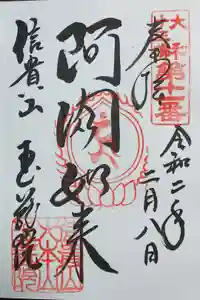 奉拝
大和十三佛第十一番
令和二年
二月八日
阿閦如来
信貴山 玉蔵院